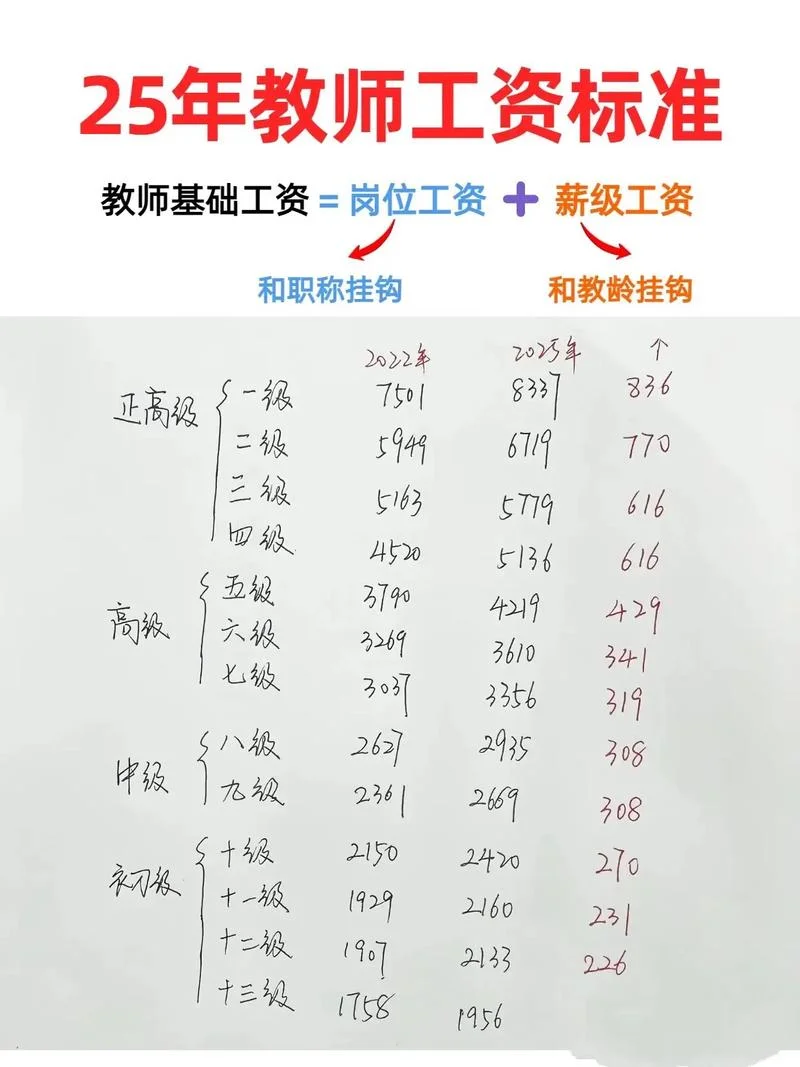 25年教师工资标准
教师基础工资=岗位工资+薪级工资
和职称挂钩 和教龄挂钩
2022年 2025年 ↑
正高级 一级 7501 8337 836
二级 5949 6719 770
三级 5163 5779 616
四级 4520 5136 616
高级 五级 3790 4219 429
六级 3269 3610 341
七级 3037 3356 319
中级 八级 2627 2935 308
九级 2361 2669 308
初级 十级 2150 2420 270
十一级 1929 2160 231
十二级 1907 2133 226
十三级 1758 1956